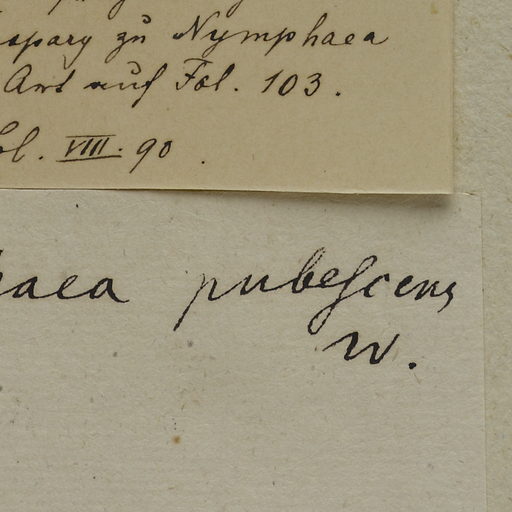 spary zu Nymphaea
Art auf Fol. 103.
VIII. 90.
haea pubescens
W.